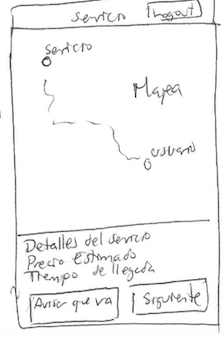 Servicio Logout
Servicio
Mapa
usuario
Detalles del servicio
Precio Estimado
Tiempo de llegada
Avisar que va Siguiente